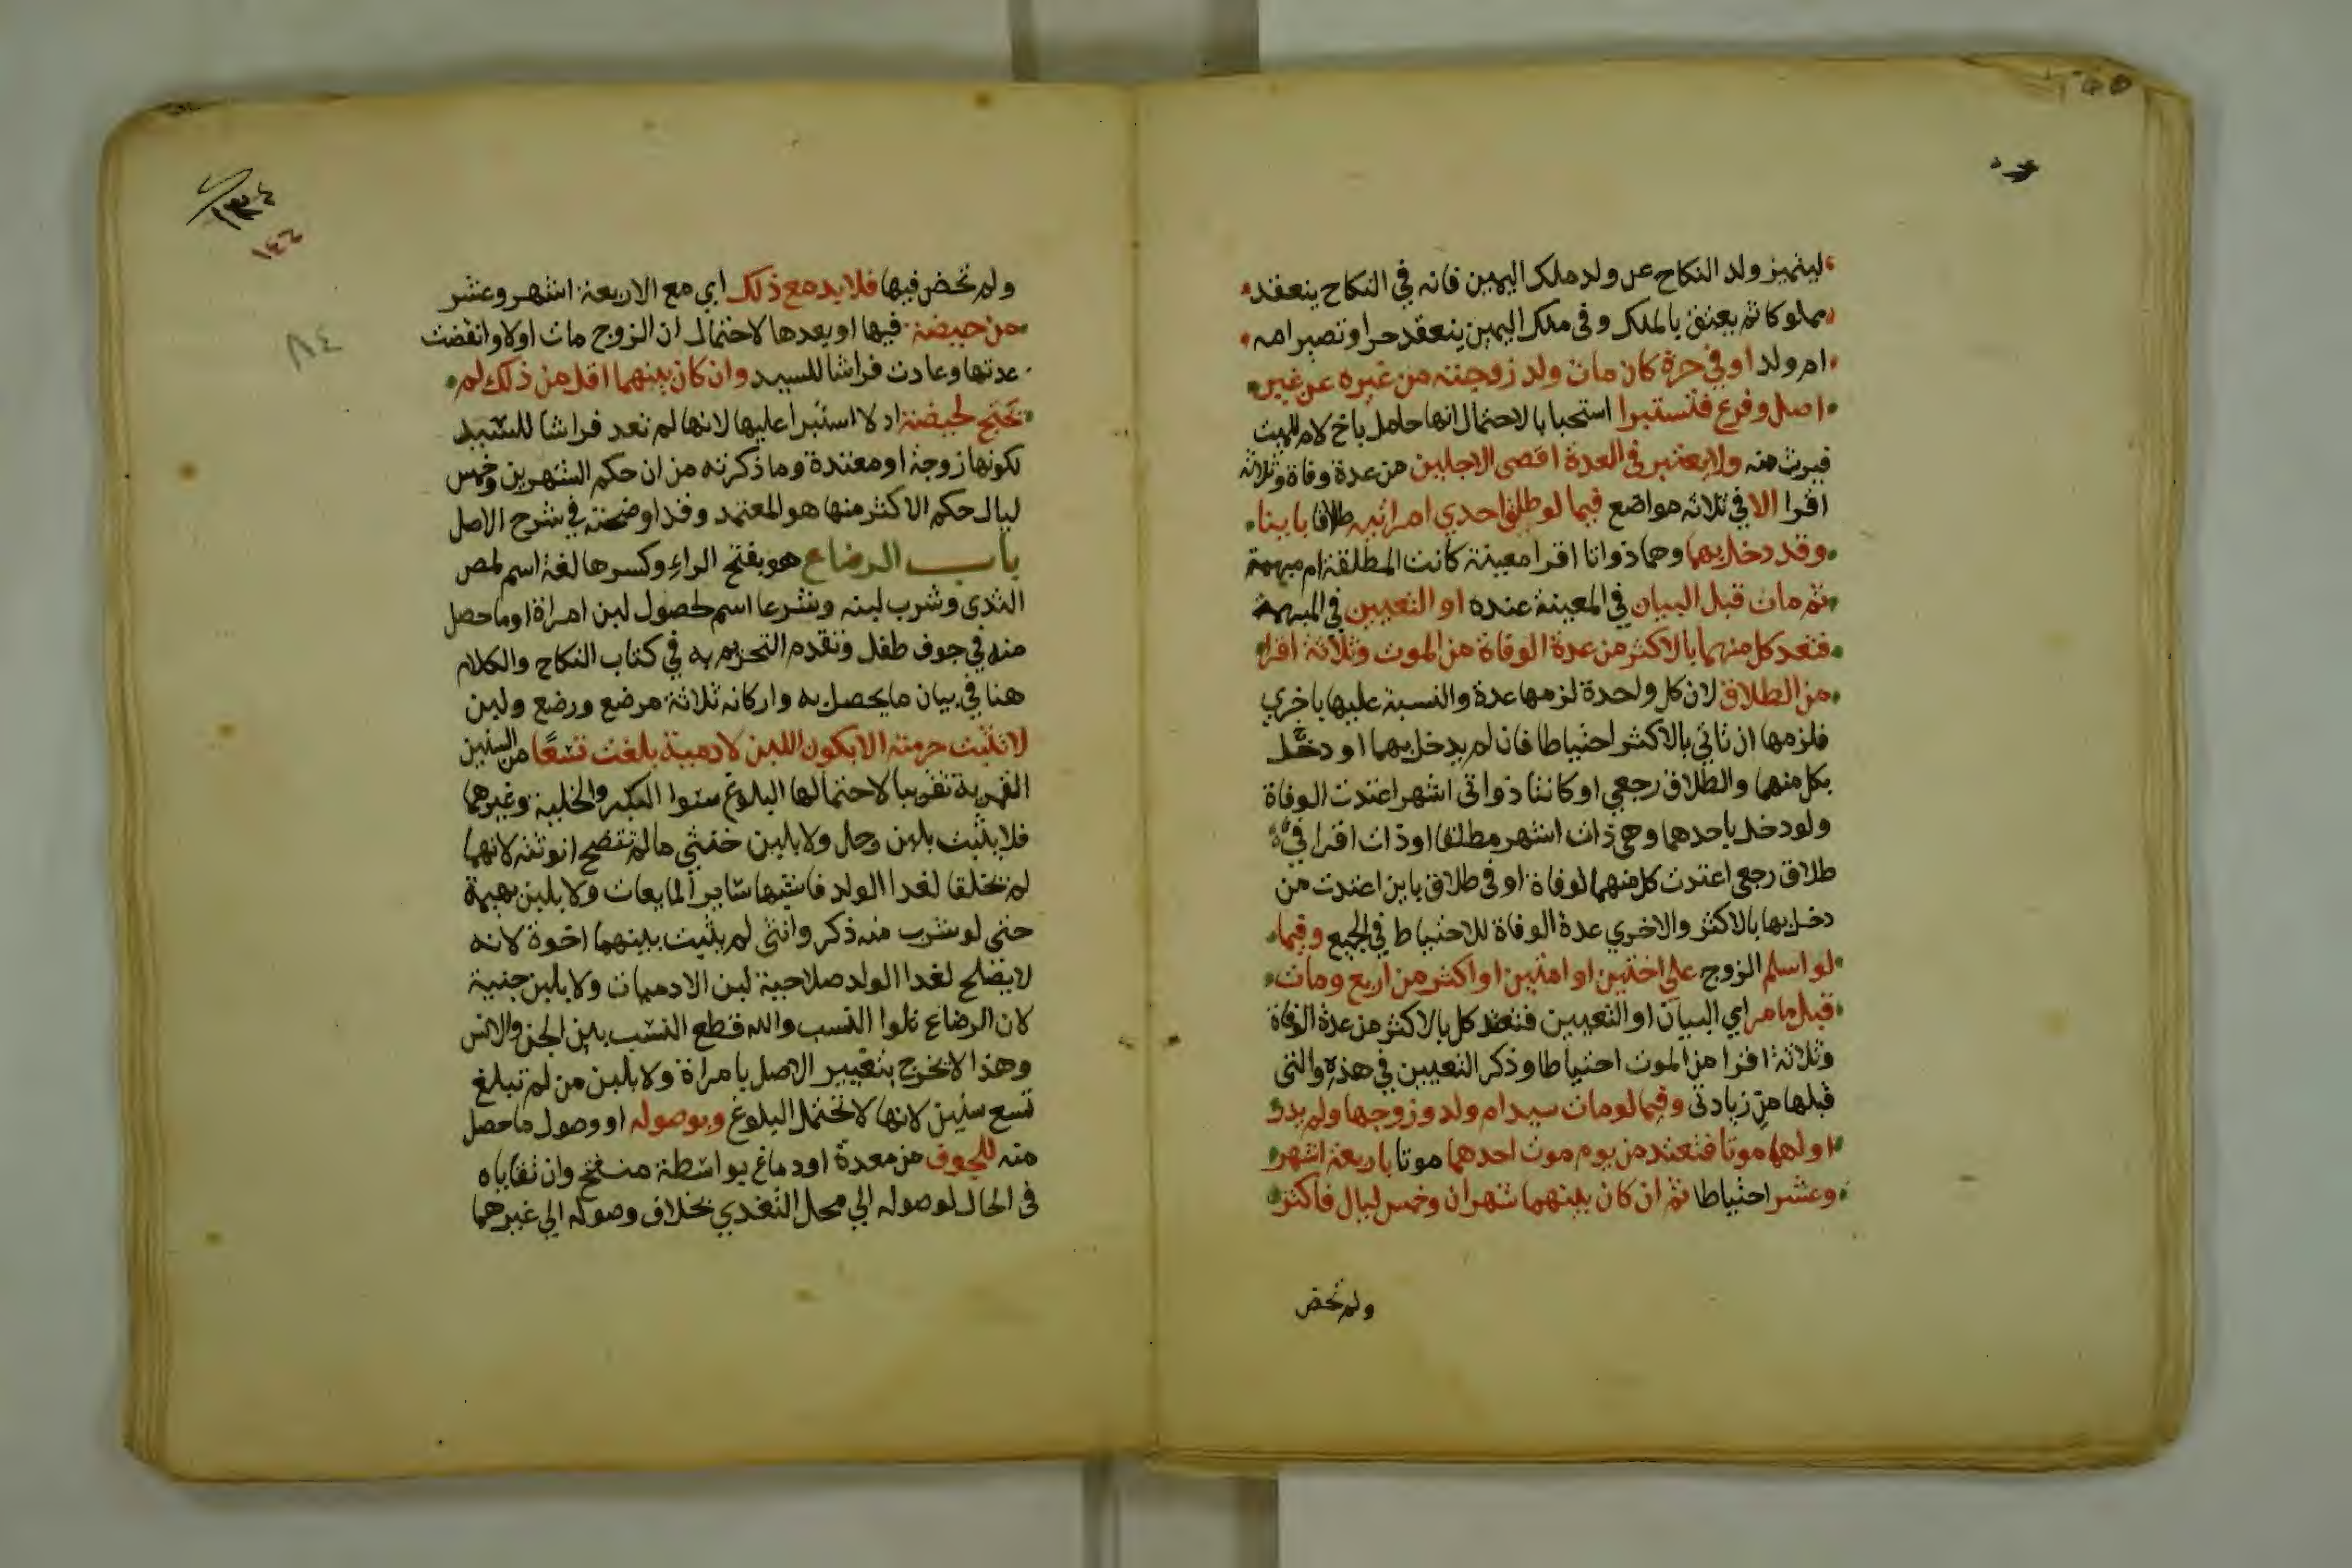 ليتميز ولد النكاح عن ولد ملك اليمين فانه في النكاح ينعقد
مملوكا ثم يعتق بالملك وفي ملك اليمين ينعقد حرا وتصير امه
ام ولد او في حرة كان مات ولد زوجته من غيره عن غير
اصل وفرع فتستبرا استحبابا لاحتمال انها حامل باخ لام للميت
فيرث منه ولا يعتبر في العدة اقصى الاجلين من عدة وفاة وثلاثة
اقرا الا في ثلاثه مواضع فيما لو طلق احدي امراتيه طلاقا باينا
وقد دخل بهما وهما ذواتا اقرا معينة كانت المطلقة ام مبهمة
ثم مات قبل البيان في المعينة عنده او التعيين في المبهمة
فتعد كل منهما بالاكثر من عدة الوفاة من الموت وثلاثة اقرا
من الطلاق لان كل واحدة لزمها عدة والتسبة عليها باخري
فلزمها ان تاتي بالاكثر احتياطا فان لم يدخل بهما او دخل
بكل منهما والطلاق رجعي او كانتا ذواتي اشهر اعتدت الوفاة
ولو دخل باحدهما وهي ذات اشهر مطلقا او ذات اقرا في
طلاق رجعي اعتدت كل منهما لوفاة او في طلاق باين اعتدت من
دخل بها بالاكثر والاخري عدة الوفاة للاحتياط في الجميع وفيما
لو اسلم الزوج علي اختين او امتين او اكثر من اربع ومات
قبل ما مر اي البيان او التعيين فتعتد كل بالاكثر من عدة الوفاة
وثلاثة اقرا من الموت احتياطا وذكر التعيين في هذه والتي
قبلها من زيادتي وفيما لو مات سيد ام ولد وزوجها ولم يدر
اولهما موتا فتعتد من يوم موت احدهما موتا باربعة اشهر
وعشر احتياطا ثم ان كان بينهما شهران وخمس ليال فاكثر
ولم تحض
١٣٤
١٤٢
ولم تحض فيها فلا بد مع ذلك اي مع الاربعة اشهر وعشر
من حيضة فيها او بعدها لاحتمال ان الزوج مات اولا وانقضت
عدتها وعادت فراشا للسيد وان كان بينهما اقل من ذلك لم
تحتج لحيضة اذ لا استبرا عليها لانها لم تعد فراشا للسيد
لكونها زوجة او معتدة وما ذكرته من ان حكم الشهرين وخمس
ليال حكم الاكثر منها هو المعتمد وقد اوضحته في شرح الاصل
باب الرضاع هو بفتح الراء وكسرها لغة اسم لمص
الثدي وشرب لبنه وشرعا اسم لحصول لبن امراة او ما حصل
منه في جوف طفل وتقدم التحريم به في كتاب النكاح والكلام
هنا في بيان ما يحصل به واركانه ثلاثة مرضع ورضع ولبن
لا تثبت حرمته الا بكون اللبن لادمية بلغت تسعا من السنين
القمرية تقريبا لاحتمالها البلوغ سوا البكر والخلية وغيرهما
فلا يثبت بلبن رجل ولا بلبن خنثي ما لم تتضح انوثته لانهما
لم يخلقا لغدا الولد فاشبها ساير المايعات ولا بلبن بهيمة
حتي لو شرب منه ذكر وانثي لم يثبت بينهما اخوة لانه
لا يصلح لغدا الولد صلاحية لبن الادميات ولا بلبن جنية
لان الرضاع تلوا النسب والله قطع النسب بين الجن والانس
وهذا لا يخرج بتعبير الاصل بامراة ولا بلبن من لم تبلغ
تسع سنين لانها لا تحتمل البلوغ وبوصوله او وصول ما حصل
منه للجوف من معدة او دماغ بواسطة منفتح وان تقاياه
في الحال لوصوله الي محل التغدي بخلاف وصوله الي غيرهما